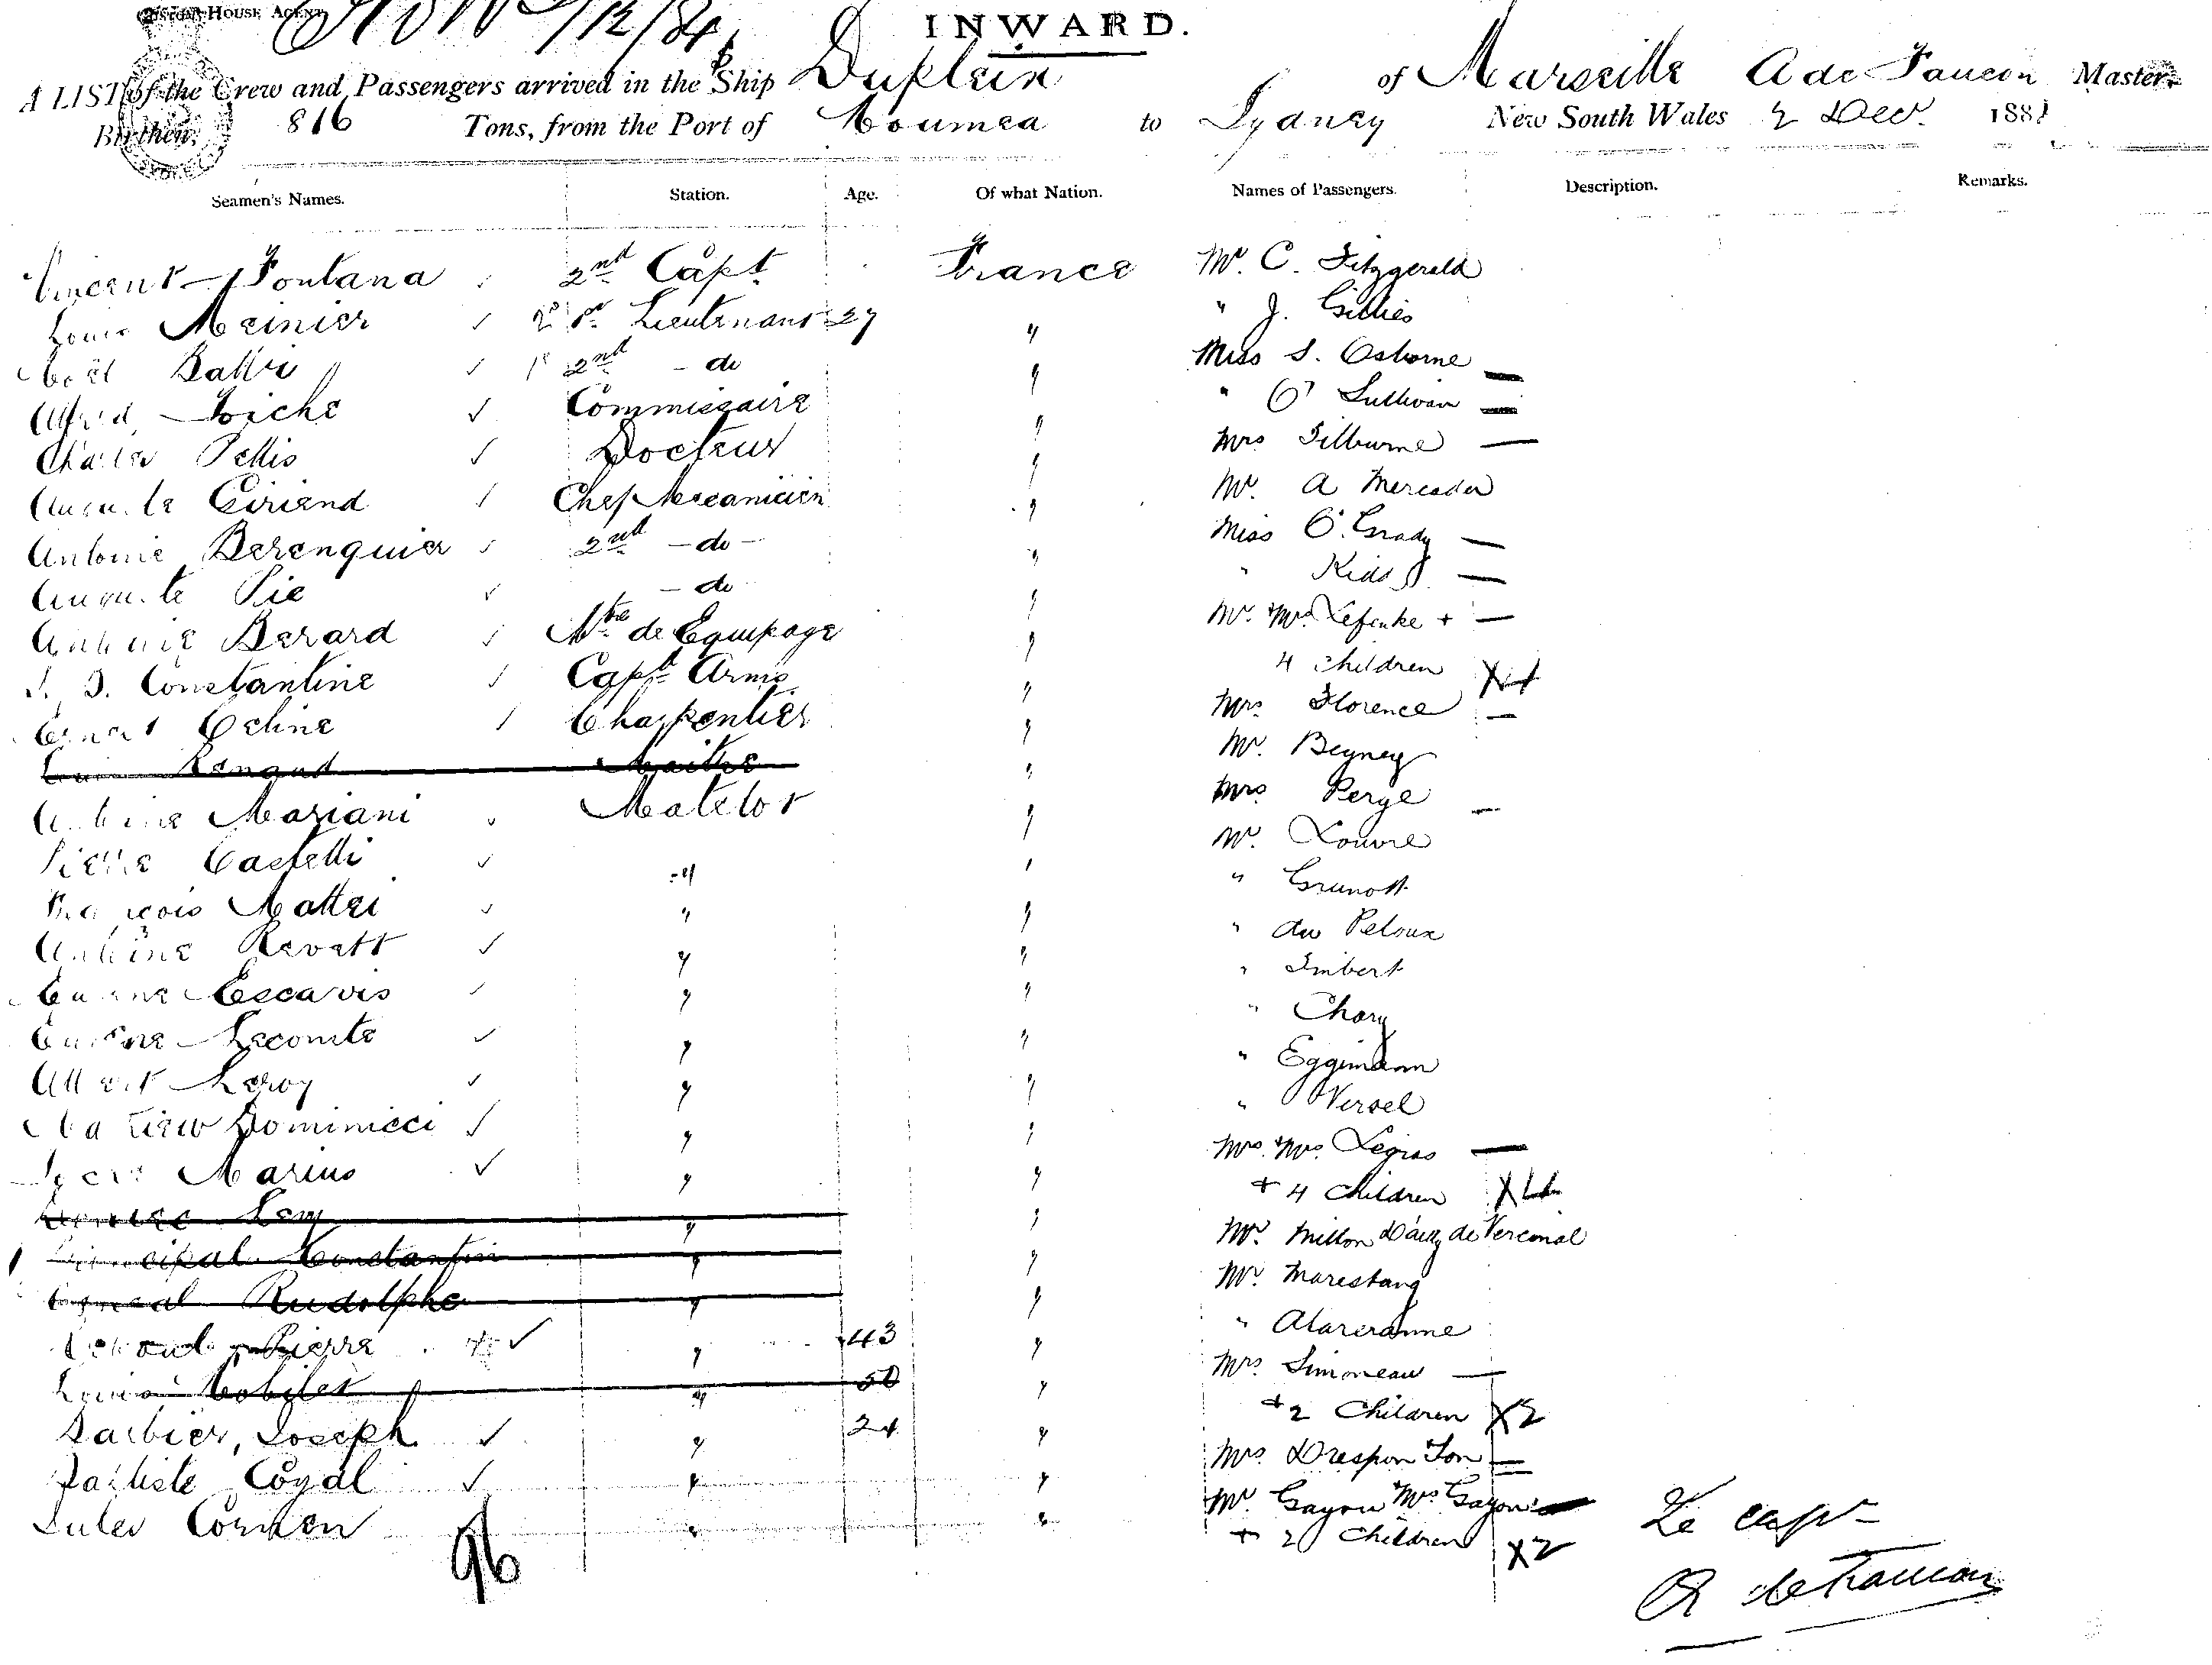 CUSTOM HOUSE AGENT
INWARD.
A LIST of the Crew and Passengers arrived in the Ship Dupleix of Marseille A de Faucon Master,
Burthen, 816 Tons, from the Port of Noumea to Sydney New South Wales 2 Dec. 188
Seamen's Names. Station. Age. Of what Nation. Names of Passengers. Description. Remarks.
Vincent Fontana 2nd Capt France Mr. C. Fitzgerald
Louis Meinier Lieutenant 27 " " J. Gillies
Noël 2nd - do " Miss S. Osborne
Alfred Commissaire " " O'Sullivan
Charles Pellis Docteur " Mrs Tilburne
Auguste Chef Mecanicien " Mr. A Mercader
Antonie Berenguier 2nd - do - " Miss O'Grady
Auguste Pie - do " " Kidd
Antonie Berard Mtre de Equipage " Mr. & Mrs Lefinke +
J. J. Constantine Capt Arms " 4 children X4
Ernest Celine Charpentier " Mrs Florence
Renaud Maitre " Mr. Beyney
Antoine Mariani Matelot " Mrs Perge
Pierre Castelli " " Mr. Louvre
François Mattei " " "
Antoine " " " du Peloux
Eugene Escavis " " " Imbert
Eugene Lecomte " " " Chary
Albert Leroy " " " Eggimann
Dominicci " " " Versel
Marius " " Mrs. Legras
" " + 4 Children X4
Constantin " " Mr. Milton
Rudolphe " " Mr. Marestang
Pierre " 43 " "
Louis " 50 " Mrs Simoneau
Barbier, Joseph " 24 " + 2 Children X2
Batiste Coyal " " Mrs
Jules " " Mr. Gayon Mrs Gayon
+ 2 Children X2
96
Le capt
A de Faucon